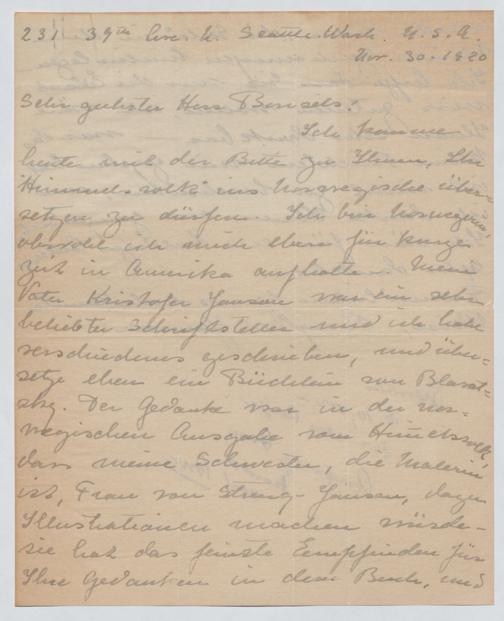 231 39th Ave. N. Seattle. Wash. U. S. A.
Nov. 30. 1920
Sehr geehrter Herr Bonsels!
Ich komme
heute mit der Bitte zu Ihnen, Ihr
"Himmelsvolk" ins Norwegische über-
setzen zu dürfen. Ich bin Norwegerin,
obwohl ich mich eben für kurze
Zeit in Amerika aufhalte. Mein
Vater Kristofer Janson war ein sehr
beliebter Schriftsteller und ich habe
verschiedenes geschrieben, und über-
setze eben ein Büchlein von Blavat-
sky. Der Gedanke war in der nor-
wegischen Ausgabe vom Himmelsvolk,
dass meine Schwester, die Malerin
ist, Frau von Streng-Janson, dazu
Illustrationen machen würde -
sie hat das feinste Eempfinden für
Ihre Gedanken in dem Buch, und